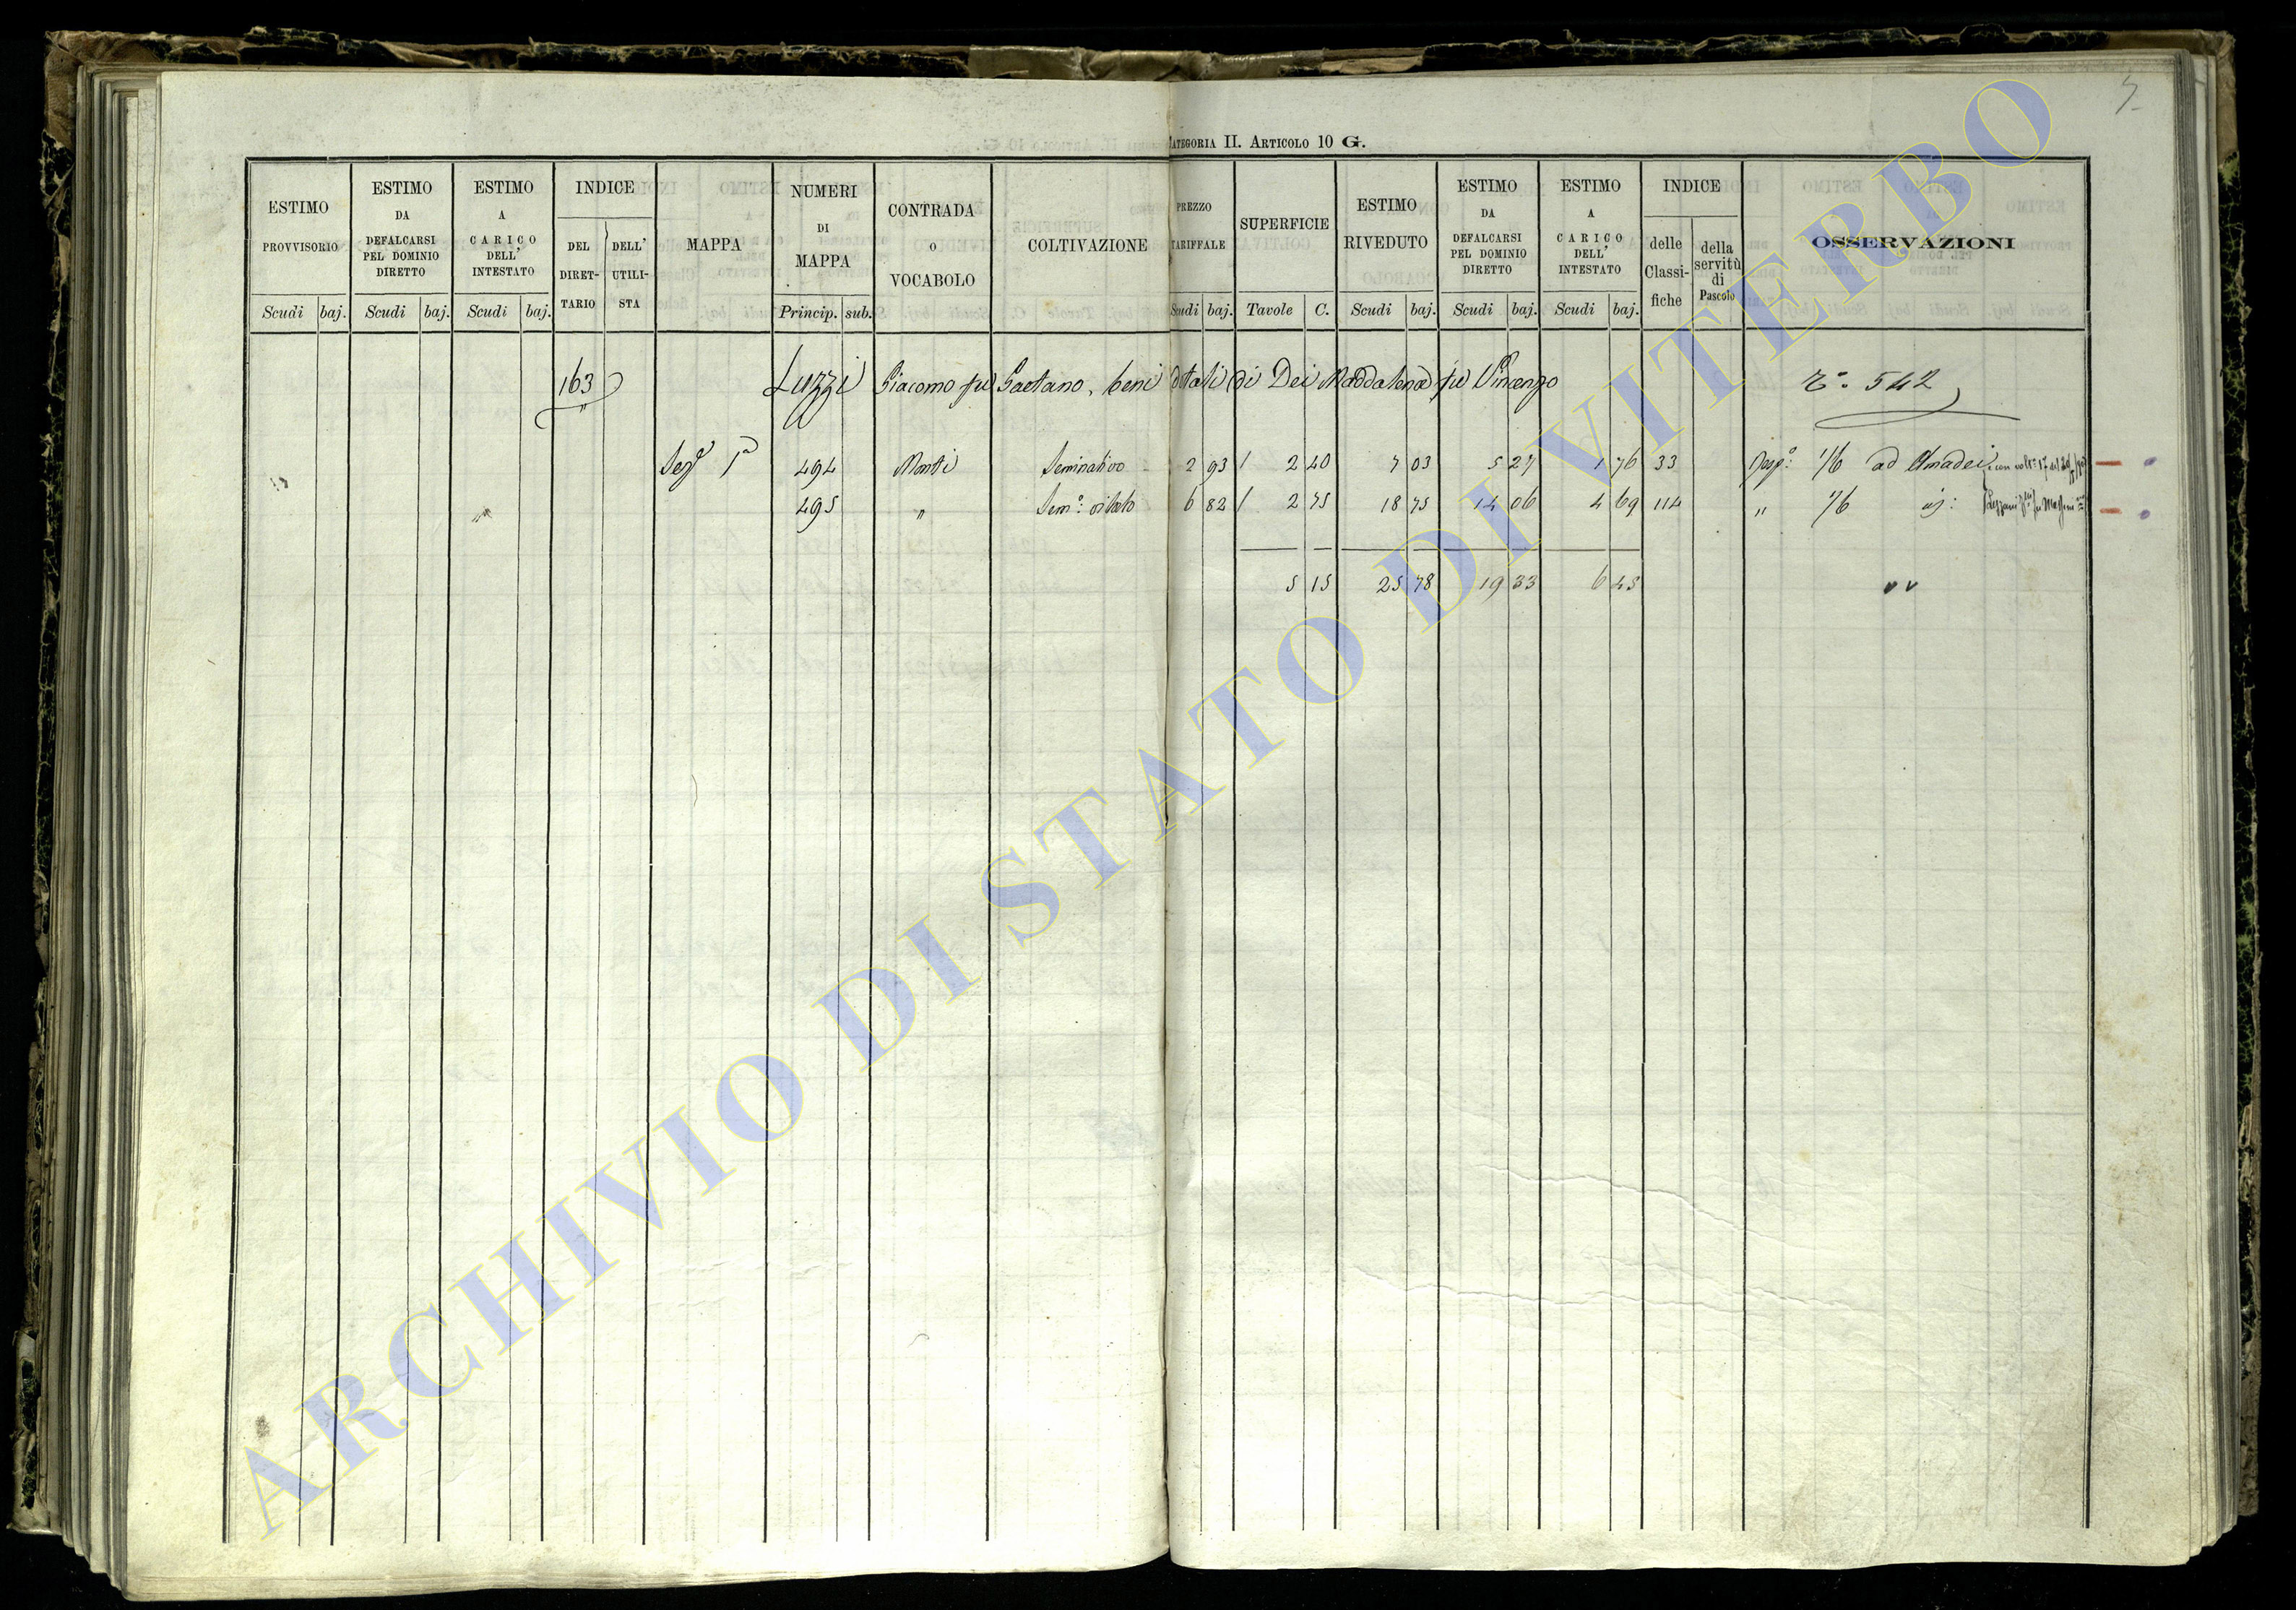 7
CATEGORIA II. ARTICOLO 10 G.
ESTIMO PROVVISORIO
ESTIMO DA DEFALCARSI PEL DOMINIO DIRETTO
ESTIMO A CARICO DELL' INTESTATO
INDICE
DEL DIRET-TARIO
DELL' UTILI-STA
MAPPA
NUMERI DI MAPPA
CONTRADA O VOCABOLO
COLTIVAZIONE
PREZZO TARIFFALE
SUPERFICIE
ESTIMO RIVEDUTO
ESTIMO DA DEFALCARSI PEL DOMINIO DIRETTO
ESTIMO A CARICO DELL' INTESTATO
INDICE
delle Classi-fiche
della servitù di Pascolo
OSSERVAZIONI
Scudi baj. Scudi baj. Scudi baj. Princip. sub. Scudi baj. Tavole C. Scudi baj. Scudi baj. Scudi baj.
163 Luzzi Giacomo fu Gaetano, beni dotali di Dei Maddalena fu Vincenzo 542
Sez.e 1a 494 Monti Seminativo 2 93 2 40 7 03 5 27 1 76 33 1/6 ad Amadei
495 " Sem.o vitato 6 82 2 75 18 75 14 06 4 69 114 " 1/6
5 15 25 78 19 33 6 45
ARCHIVIO DI STATO DI VITERBO